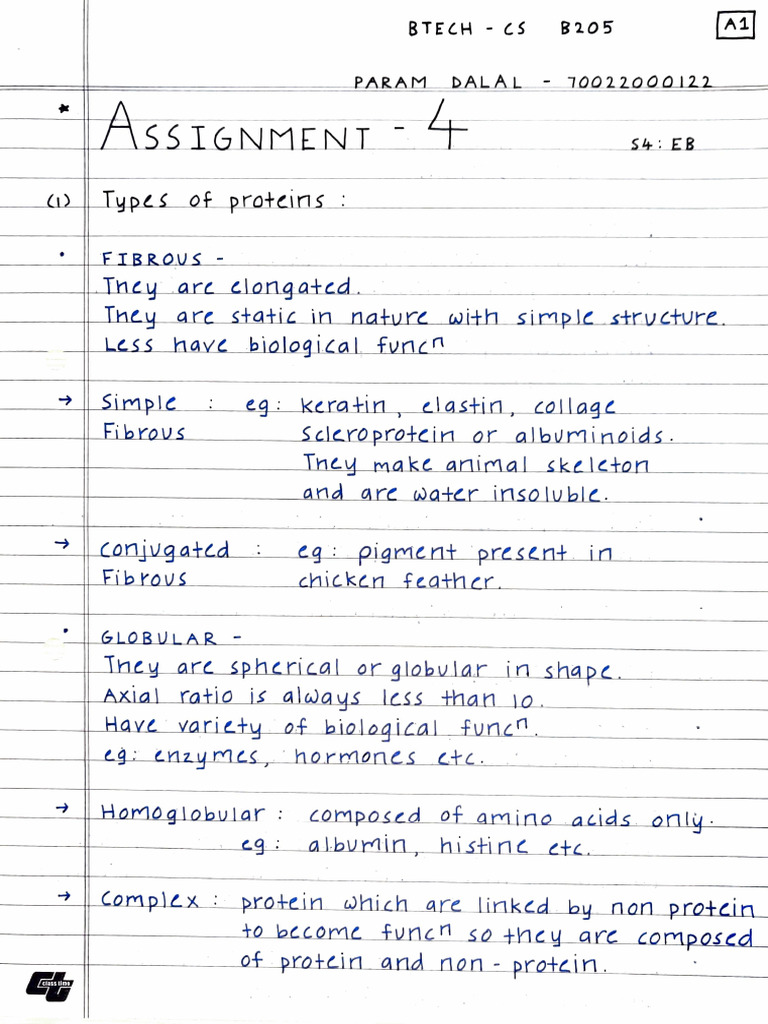 BTECH - CS B205 A1
PARAM DALAL - 70022000122
* ASSIGNMENT - 4 S4: EB
(1) Types of proteins :
• FIBROUS -
They are elongated.
They are static in nature with simple structure.
Less have biological funcⁿ
→ Simple : eg: keratin, elastin, collage
Fibrous Scleroprotein or albuminoids.
They make animal skeleton
and are water insoluble.
→ Conjugated : eg: pigment present in
Fibrous chicken feather.
• GLOBULAR -
They are spherical or globular in shape.
Axial ratio is always less than 10.
Have variety of biological funcⁿ.
eg: enzymes, hormones etc.
→ Homoglobular : composed of amino acids only.
eg: albumin, histine etc.
→ Complex : protein which are linked by non protein
to become funcⁿ so they are composed
of protein and non-protein.
class time